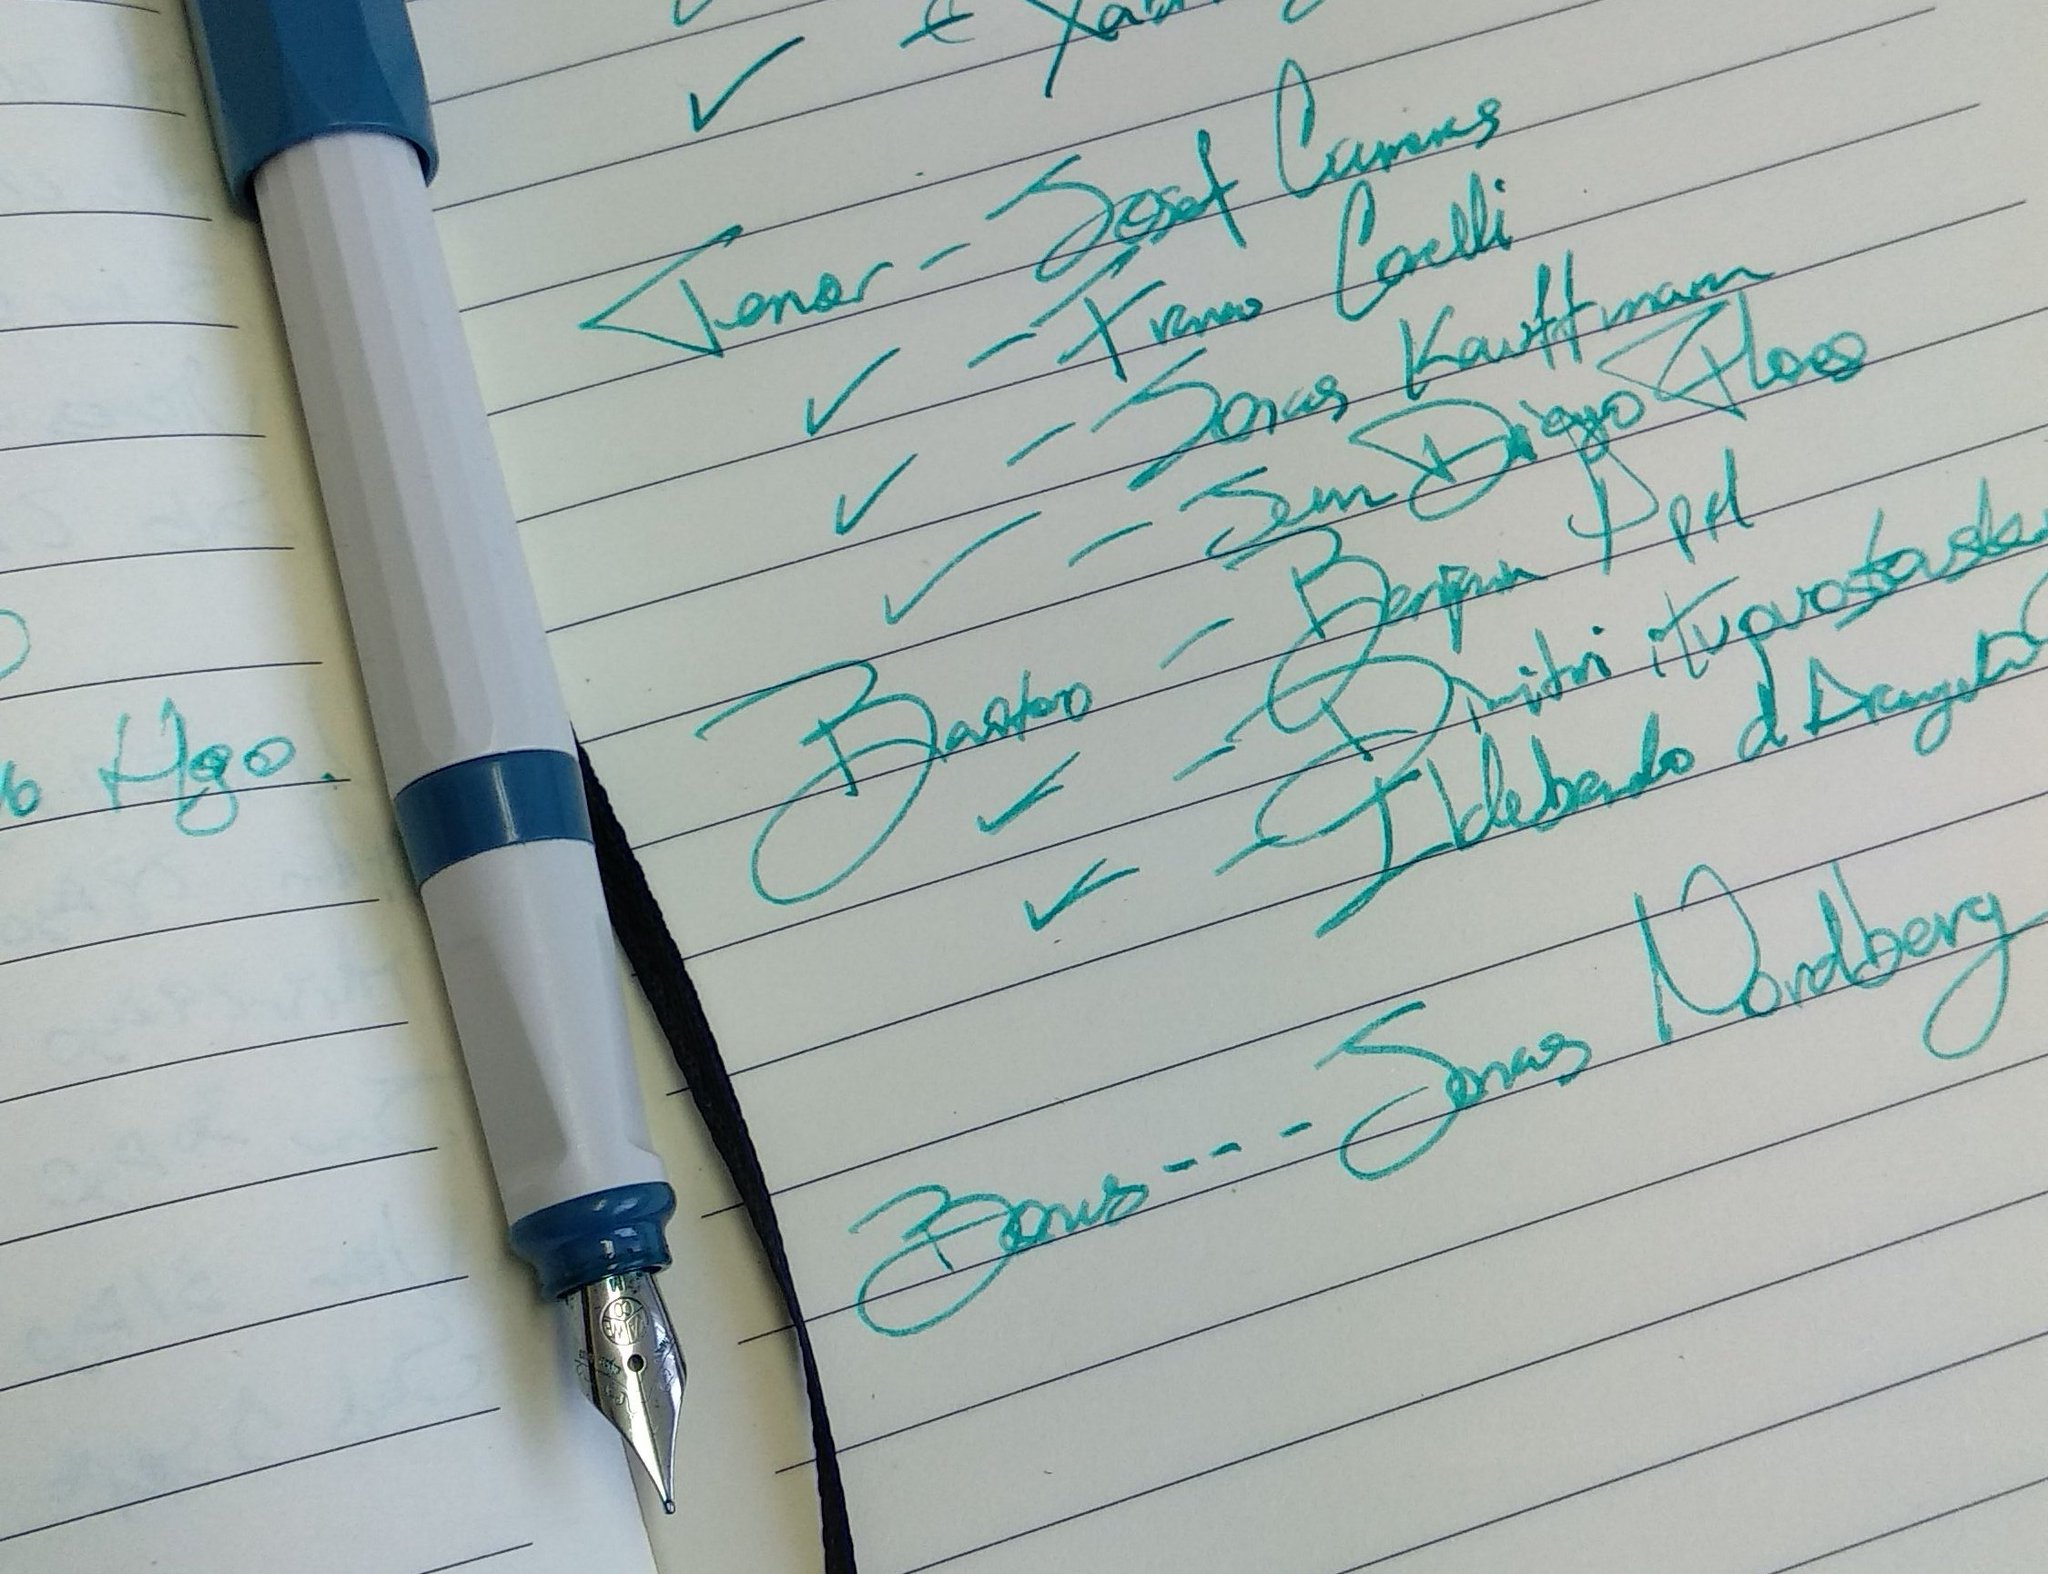 Tenor - Josef Carreras
- Franco Corelli
- Jonas Kauffmann
- Juan Diego Flores
Bariton - Benjamin Appl
- Dmitri Hvorostovsky
- Ildebrando d Arcangelo
Bonus --- Jonas Nordberg